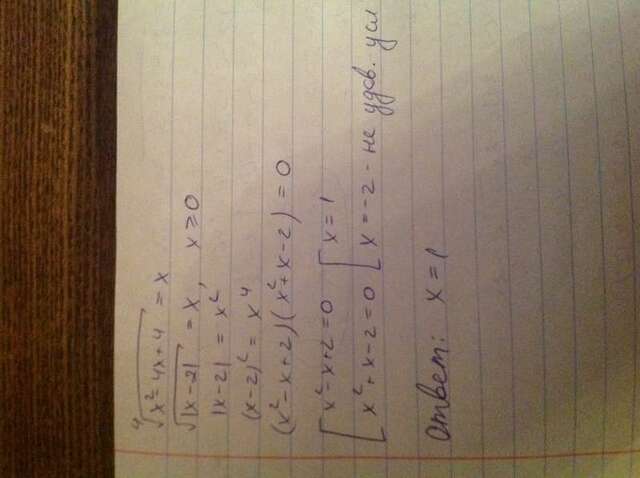 ⁴√(x²-4x+4) = x
√|x-2| = x, x ≥ 0
|x-2| = x²
(x-2)² = x⁴
(x²-x+2)(x²+x-2) = 0
[ x²-x+2=0 [ x=1
x²+x-2=0 x=-2 - не удов. усл
Ответ: x=1